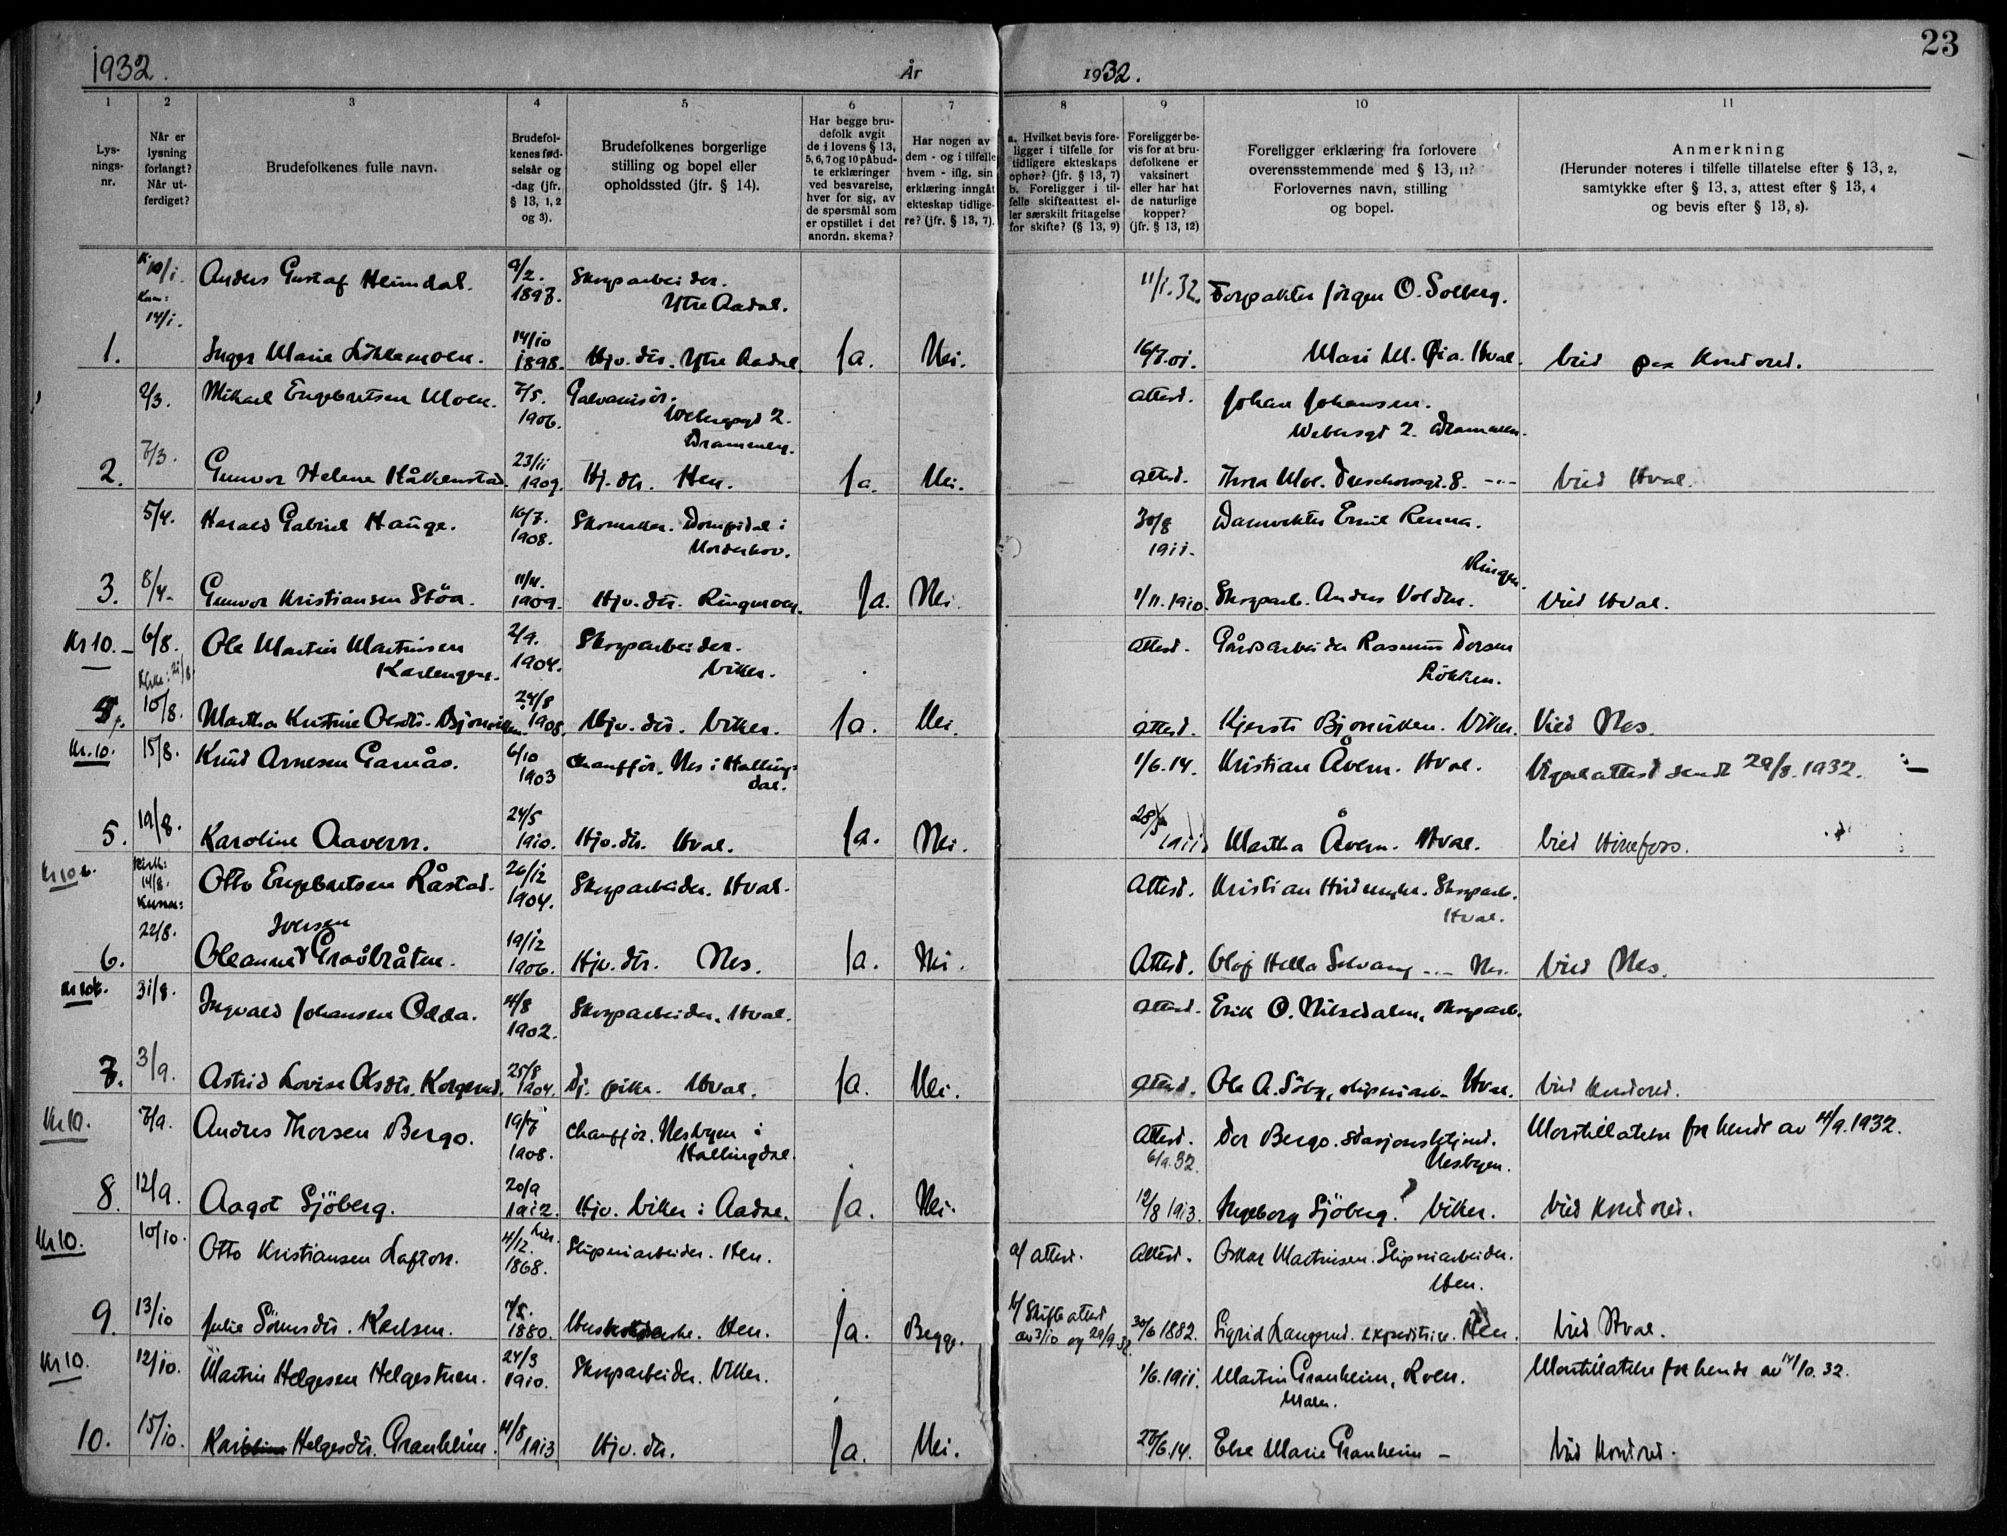 23
1932.
År
1932.
1
2
3
4
5
6
7
8
9
10
11
Lys-
nings-
nr.
Når er
lysning
forlangt?
Når ut-
ferdiget?
Brudefolkenes fulle navn.
Brudefol-
kenes fød-
selsår og
-dag (jfr.
§ 13, 1, 2
og 3).
Brudefolkenes borgerlige
stilling og bopel eller
opholdssted (jfr. § 14).
Har begge bru-
defolk avgit
de i lovens § 13,
5, 6, 7 og 10 påbud-
te erklæringer
ved besvarelse,
hver for sig, av
de spørsmål som
er opstillet i det
anordn. skema?
Har nogen av
dem - og i tilfelle
hvem - iflg. sin
erklæring inngåt
ekteskap tidlige-
re? (jfr. § 13, 7).
a. Hvilket bevis fore-
ligger i tilfelle for
tidligere ekteskaps
ophør? (jfr. § 13, 7)
b. Foreligger i til-
felle skifteattest el-
ler særskilt fritagelse
for skifte? (§ 13, 9)
Foreligger be-
vis for at bru-
defolkene er
vaksinert
eller har hat
de naturlige
kopper?
(jfr. § 13, 12)
Foreligger erklæring fra forlovere
overensstemmende med § 13, 11?
Forlovernes navn, stilling
og bopel.
Anmerkning
(Herunder noteres i tilfelle tillatelse efter § 13, 2,
samtykke efter § 13, 3, attest efter § 13, 4
og bevis efter § 13, 8).
10/1. Anders Gustaf Heimdal. 9/2. 1897. Skogarbeider. Ytre Aadal. 11/1.32. Forpakter Jörgen O. Solberg.
14/1.
1. Inger Marie Lökkemoen. 14/10 1898. Hjv. dtr. Ytre Aadal. Ja. Nei. 16/7.01. Mari M. Öia. Hval. Vied paa Kontoret.
2/3. Mikael Engebretsen Moen. 7/5. 1906. Galvanisör. Webergsgt 2. Drammen. attest. Johan Johansen. Webersgt 2. Drammen.
2. 7/3. Gunvor Helene Håkenstad. 23/11 1909. Hj. dtr. Hen. Ja. Nei. attest. Thora Moe. 8. -"- Vied Hval.
5/4. Harald Gabriel Hauge. 16/7. 1908. Skomaker. i Norderhov. 30/8 1911. Damvokter Emil Renna. Ringen.
3. 8/4. Gunvor Kristiansen Stöa. 11/4. 1909. Hjv. dtr. Ringmoen. Ja. Nei. 1/11.1910. Skogarb. Anders Volden. Vied Hval.
Kr 10.- 6/8. Ole Martin Martinsen Karlengen. 2/9. 1904. Skogarbeider. Viker. attest. Gårdsarbeider Rasmus Torsen Lökken.
21/8
4. 10/8. Martha Kristine Olsdtr. Bjonviken. 24/8 1908. Hjv. dtr. Viker. Ja. Nei. attest. Kjersti Bjonviken. Viker. Vied Nes.
Kr. 10. 15/8. Knud Arnesen Garnås. 6/10 1903 Chaufför. Nes i Hallingdal. 1/6.14. Kristian Åvern. Hval. Vigselattest sendt 29/8.1932.
5. 19/8. Karoline Aavern. 24/5 1910. Hjv. dtr. Hval. Ja. Nei. 28/5 1911 Martha Åvern. Hval. Vied Hönefoss.
Kr 10 b. 14/8. Otto Engebretsen Råstad. 26/12 1904. Skogarbeider. Hval. Attest. Kristian Skogarb. Hval.
22/8.
Iversen
6. Oleanne Gravbråten. 19/12 1906. Hjv. dtr. Nes. Ja. Nei. Attest. Olaf Hella -"- Nes. Vied Nes.
Kr 10 b. 31/8. Ingvald Johansen Odda. 4/8 1902. Skogarbeider. Hval. attest. Erik O. Nilsedalen, skogarb.
7. 3/9. Astrid Lovise Olsdtr. Korgerud. 25/8 1904. Tj. pike. Hval. Ja. Nei. attest. Ole A. Söby, sliperiarb. Hval. Vied Kontoret.
Kr 10. 7/9. Andres Thorsen Bergo. 19/7 1908. Chaufför. Nesbyen i Hallingdal. Attest. 6/9.32. Tor Bergo. stasjonsbetjent. Nesbyen. Morstillatelse for hende av 4/9.1932.
8. 12/9. Aagot Sjöberg. 20/9 1912. Hjv. Viker i Aadal. Ja. Nei. 12/8 1913. Ingeborg Sjöberg. Viker. Vied Kontoret.
Kr 10. 10/10. Otto Kristiansen Lafton. 4/12. 1868. Sliperiarbeider. Hen. a/ attest. Attest. Oskar Martinsen. Sliperiarbeider. Hen.
9. 13/10 Julie Sörensdtr. Karlsen. 7/5. 1880. Hen. Ja. Begge. b/ Skifteattest av 3/10 og 29/9 32. 30/6 1882. Sigrid Langerud. expeditrise. Hen. Vied Hval.
Kr 10. 12/10. Martin Helgesen Helgestuen. 24/3 1910. Skogarbeider. Viker. 1/6.1911. Martin Granheim, Roen. Maler. Morstillatelse for hende av 14/10.32.
10. 15/10. Kari Helgesdtr. Granheim. 4/8 1913 Hjv. dtr. Ja. Nei. 27/6.14. Else Marie Granheim - Vied Kontoret.